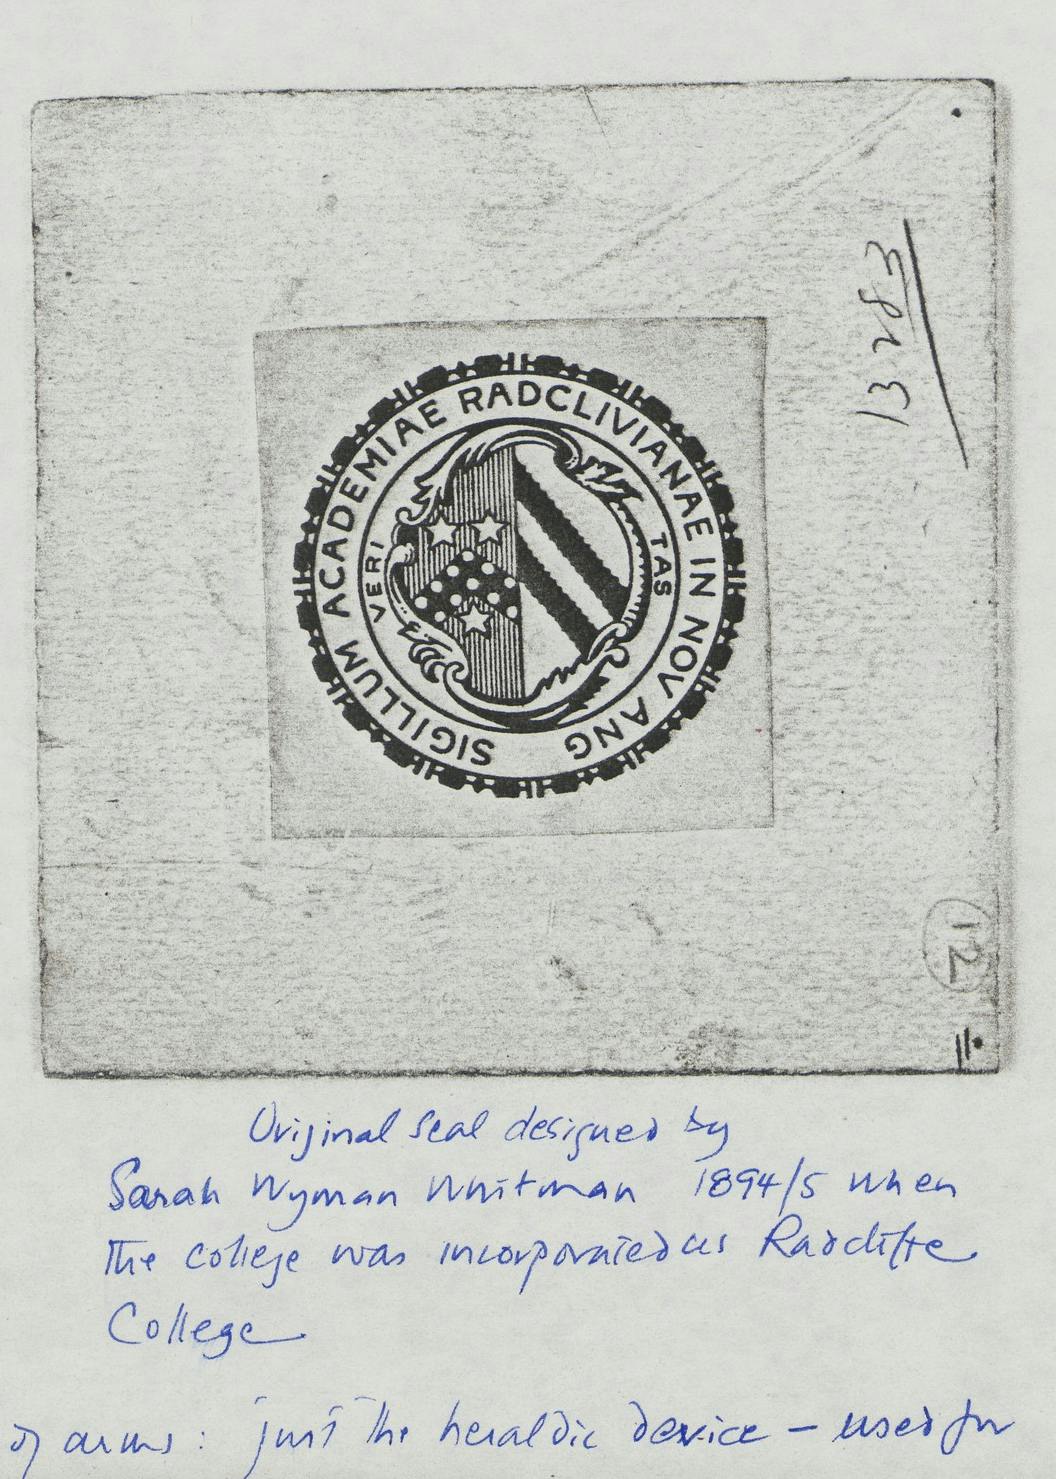 13283
SIGILLUM ACADEMIAE RADCLIVIANAE IN NOV ANG
VERI TAS
12
Original seal designed by
Sarah Wyman Whitman 1894/5 when
the college was incorporated as Radcliffe
College
of arms: just the heraldic device – used for